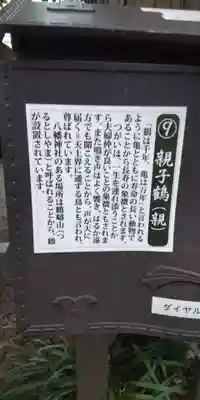 ⑨ 親子鶴の親
「鶴は千年、亀は万年」と言われる
ように亀とともに寿命の長い動物で
あることから長寿の象徴とされます。
つがいは、一生を連れ添うことか
ら夫婦仲が良いことの象徴ともされま
す。また鳴き声はよく響き、はるか遠
方でも聞こえることから、声が天に
届く＝天上界に通ずる鳥とも言われ、
尊ばれています。
八幡神社のある場所は鶴嶺山（つ
るとしやま）と呼ばれることから、鶴
が設置されています。
ダイヤル